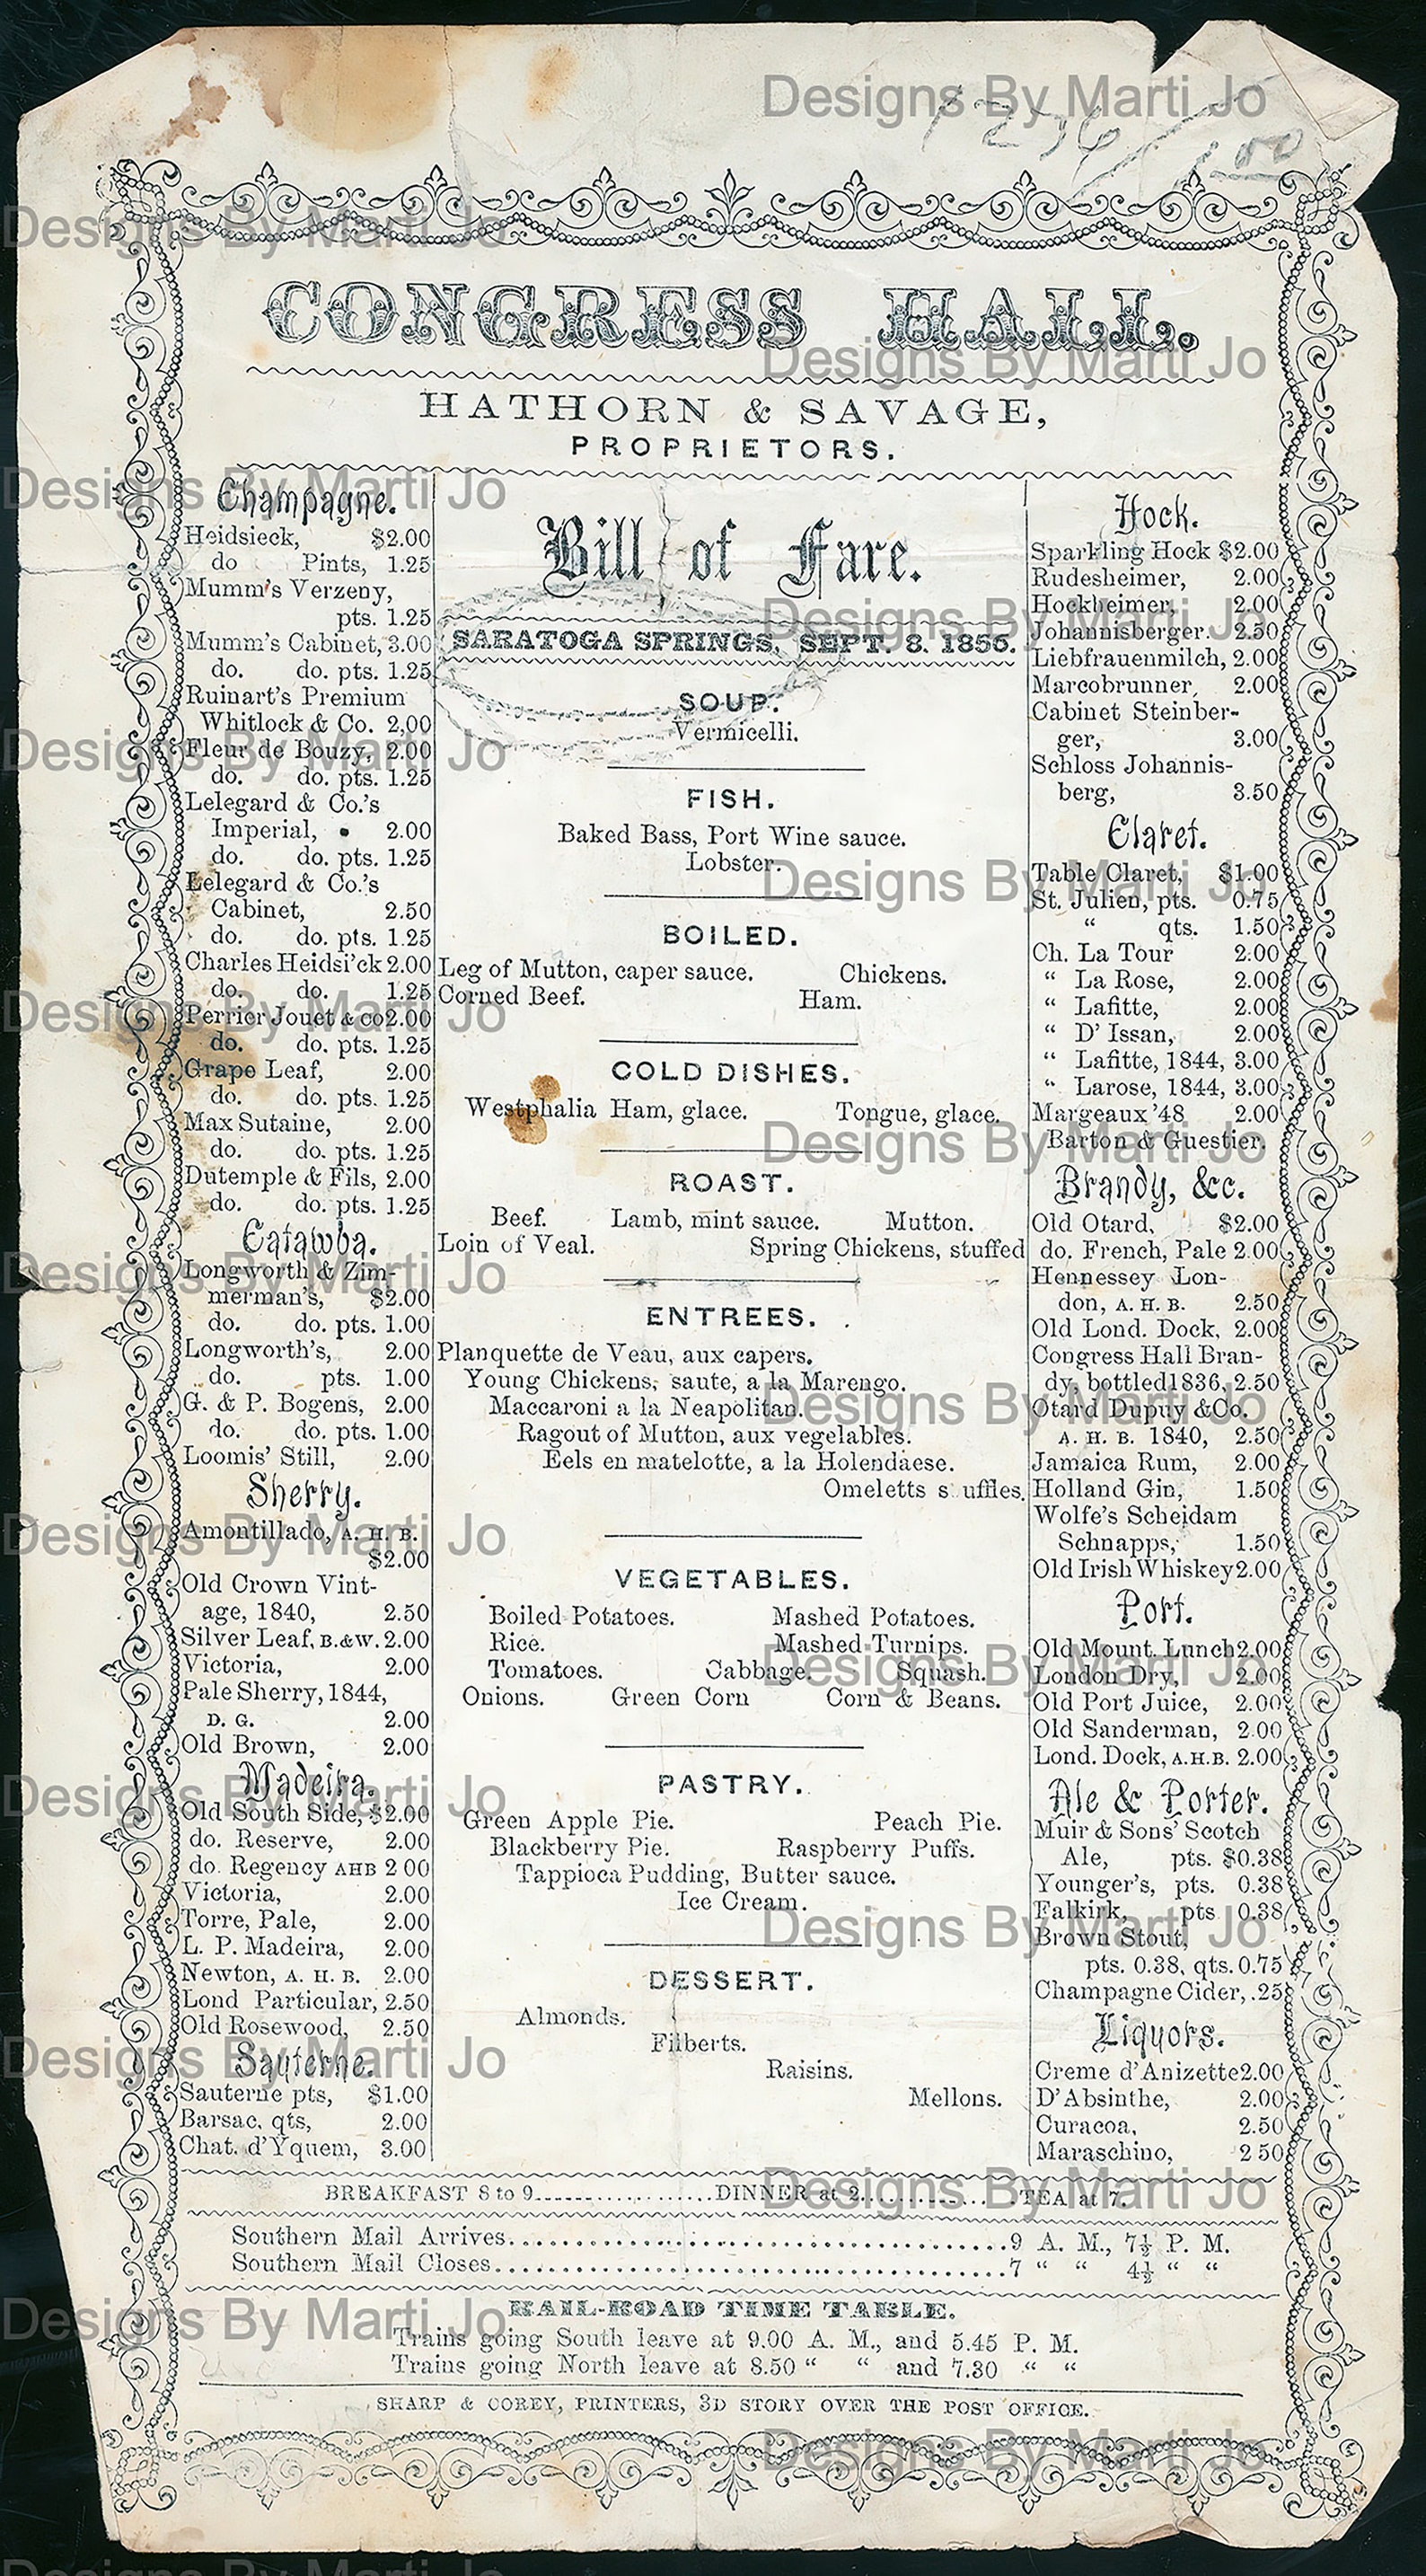 CONGRESS HALL.
HATHORN & SAVAGE,
PROPRIETORS.
Champagne.
Heidsieck, $2.00
do Pints, 1.25
Mumm's Verzeny,
pts. 1.25
Mumm's Cabinet, 3.00
do. do. pts. 1.25
Ruinart's Premium
Whitlock & Co. 2,00
Fleur de Bouzy, 2.00
do. do. pts. 1.25
Lelegard & Co.'s
Imperial, 2.00
do. do. pts. 1.25
Lelegard & Co.'s
Cabinet, 2.50
do. do. pts. 1.25
Charles Heidsi'ck 2.00
do. do. 1.25
Perrier Jouet & co 2.00
do. do. pts. 1.25
Grape Leaf, 2.00
do. do. pts. 1.25
Max Sutaine, 2.00
do. do. pts. 1.25
Dutemple & Fils, 2.00
do. do. pts. 1.25
Catawba.
Longworth & Zim-
merman's, $2.00
do. do. pts. 1.00
Longworth's, 2.00
do. pts. 1.00
G. & P. Bogens, 2.00
do. do. pts. 1.00
Loomis' Still, 2.00
Sherry.
Amontillado, A. H. B.
$2.00
Old Crown Vint-
age, 1840, 2.50
Silver Leaf, B.&W. 2.00
Victoria, 2.00
Pale Sherry, 1844,
D. G. 2.00
Old Brown, 2.00
Madeira.
Old South Side, $2.00
do. Reserve, 2.00
do. Regency AHB 2 00
Victoria, 2.00
Torre, Pale, 2.00
L. P. Madeira, 2.00
Newton, A. H. B. 2.00
Lond Particular, 2.50
Old Rosewood, 2.50
Sauterne.
Sauterne pts, $1.00
Barsac. qts, 2.00
Chat. d'Yquem, 3.00
Bill of Fare.
SARATOGA SPRINGS, SEPT. 8. 1856.
SOUP.
Vermicelli.
FISH.
Baked Bass, Port Wine sauce.
Lobster.
BOILED.
Leg of Mutton, caper sauce. Chickens.
Corned Beef. Ham.
COLD DISHES.
Westphalia Ham, glace. Tongue, glace.
ROAST.
Beef. Lamb, mint sauce. Mutton.
Loin of Veal. Spring Chickens, stuffed
ENTREES.
Planquette de Veau, aux capers.
Young Chickens, saute, a la Marengo.
Maccaroni a la Neapolitan.
Ragout of Mutton, aux vegelables.
Eels en matelotte, a la Holendaese.
Omeletts s uffles.
VEGETABLES.
Boiled Potatoes. Mashed Potatoes.
Rice. Mashed Turnips.
Tomatoes. Cabbage. Squash.
Onions. Green Corn Corn & Beans.
PASTRY.
Green Apple Pie. Peach Pie.
Blackberry Pie. Raspberry Puffs.
Tappioca Pudding, Butter sauce.
Ice Cream.
DESSERT.
Almonds.
Filberts.
Raisins.
Mellons.
Hock.
Sparkling Hock $2.00
Rudesheimer, 2.00
Hockheimer, 2.00
Johannisberger. 2.50
Liebfrauenmilch, 2.00
Marcobrunner, 2.00
Cabinet Steinber-
ger, 3.00
Schloss Johannis-
berg, 3.50
Claret.
Table Claret, $1.00
St. Julien, pts. 0.75
“ qts. 1.50
Ch. La Tour 2.00
“ La Rose, 2.00
“ Lafitte, 2.00
“ D' Issan, 2.00
“ Lafitte, 1844, 3.00
“ Larose, 1844, 3.00
Margeaux '48 2.00
Barton & Guestier.
Brandy, &c.
Old Otard, $2.00
do. French, Pale 2.00
Hennessey Lon-
don, A. H. B. 2.50
Old Lond. Dock, 2.00
Congress Hall Bran-
dy, bottled 1836, 2.50
Otard Dupuy & Co.
A. H. B. 1840, 2.50
Jamaica Rum, 2.00
Holland Gin, 1.50
Wolfe's Scheidam
Schnapps, 1.50
Old Irish Whiskey 2.00
Port.
Old Mount. Lunch 2.00
London Dry, 2.00
Old Port Juice, 2.00
Old Sanderman, 2.00
Lond. Dock, A.H.B. 2.00
Ale & Porter.
Muir & Sons' Scotch
Ale, pts. $0.38
Younger's, pts. 0.38
Falkirk, pts 0.38
Brown Stout,
pts. 0.38, qts. 0.75
Champagne Cider, .25
Liquors.
Creme d'Anizette 2.00
D'Absinthe, 2.00
Curacoa, 2.50
Maraschino, 2 50
BREAKFAST 8 to 9....................DINNER at 2....................TEA at 7.
Southern Mail Arrives........................................9 A. M., 7½ P. M.
Southern Mail Closes........................................7 “ “ 4½ “ “
RAIL-ROAD TIME TABLE.
Trains going South leave at 9.00 A. M., and 5.45 P. M.
Trains going North leave at 8.50 “ “ and 7.30 “ “
SHARP & COREY, PRINTERS, 3D STORY OVER THE POST OFFICE.
Designs By Marti Jo